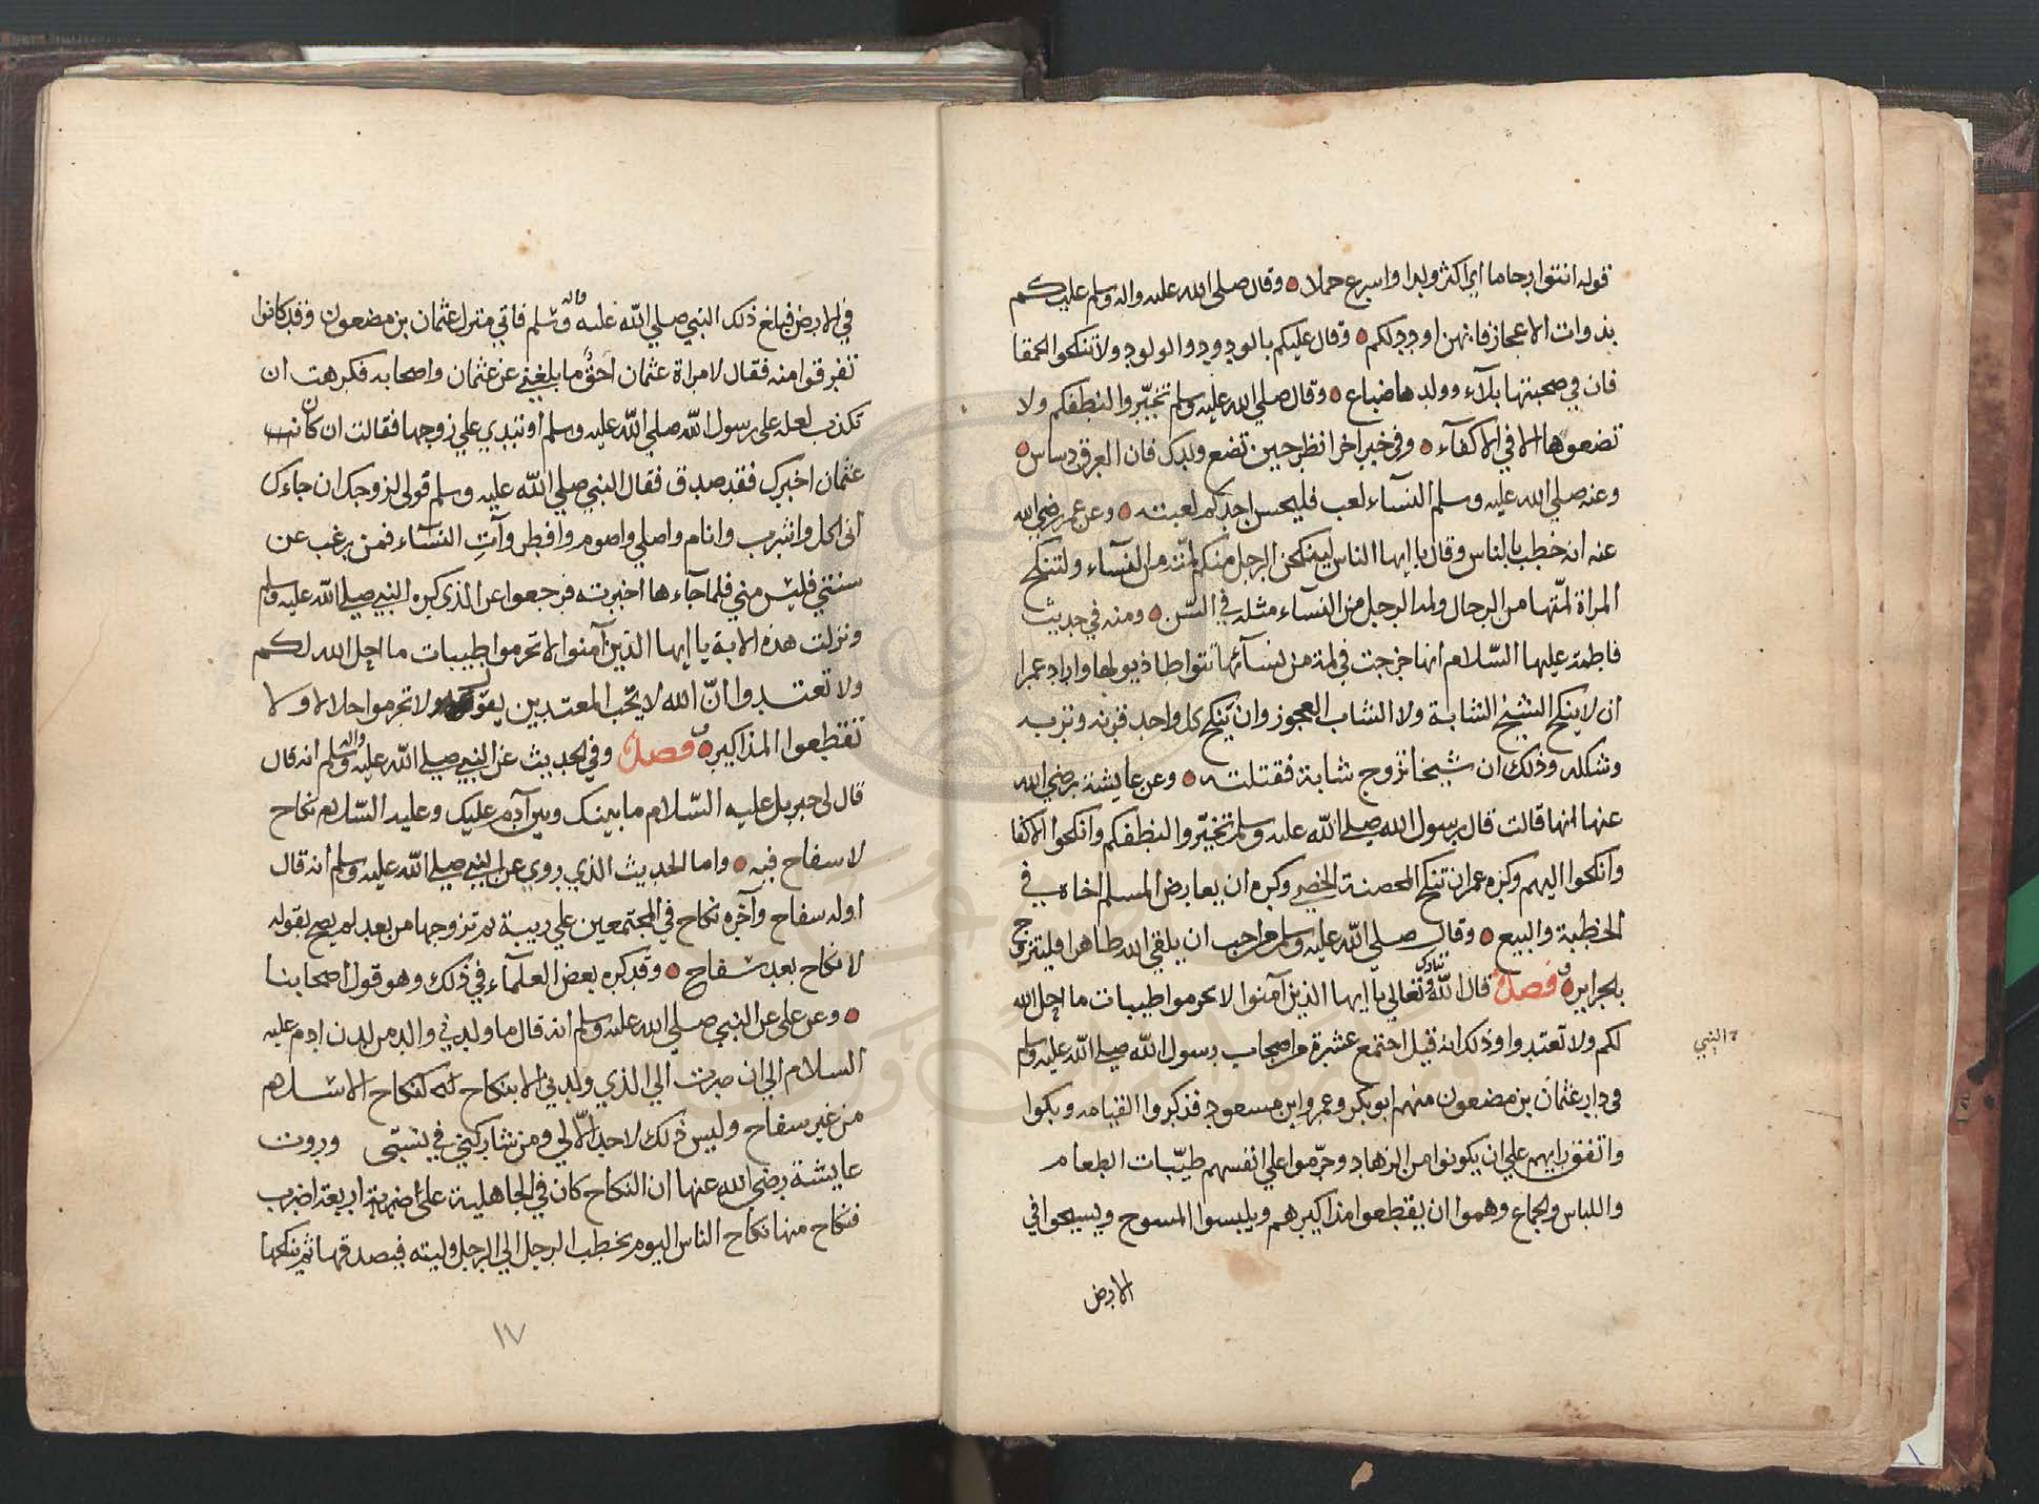 قوله انتقوا رحاما اي اكثر ولدا واسرع حملا ه وقال صلى الله عليه واله وسلم عليكم
بذوات الاعجاز فانهن اوجد لكم ه وقال عليكم بالودود والولود ولا تنكحوا الحمقا
فان في صحبتها بلآء وولدها ضياع ه وقال صلي الله عليه وسلم تخيّروا لنطفكم ولا
تضعوها الا في الاكفآء ه وفي خبر اخر انظر حين تضع ولدك فان العرق دساس ه
وعنه صلي الله عليه وسلم النسآء لعب فليحسن احدكم لعبته ه وعن عمر رضي الله
عنه انه خطب بالناس وقال يا ايها الناس لينكحن الرجل منكم لمّته من النسآء ولتنكح
المراة لمّتها من الرجال ولمة الرجل من النسآء مثله في السّن ه ومنه في حديث
فاطمة عليها السّلام انها خرجت في لمة من نسآئها تتواطا ذيولها واراد عمر
ان لا ينكح الشيخ الشابة ولا الشاب العجوز وان ينكح كل واحد قرنه وتربه
وشكله وذلك ان شيخا تزوج شابة فقتلته ه وعن عايشة رضي الله
عنها انها قالت قال رسول الله صلى الله عليه وسلم تخيّروا لنطفكم وانكحوا الاكفا
وانكحوا اليهم وكره عمر ان تنكح المحصنة الخصي وكره ان يعارض المسلم اخاه في
الخطبة والبيع ه وقال صلي الله عليه وسلم من احب ان يلقي الله طاهرا فليتزوج
بالحراير ه فصل قال الله تبارك وتعالي يا ايها الذين آمنوا لا تحرموا طيبات ما احل الله
لكم ولا تعتدوا وذلك انه قيل اجتمع عشرة من اصحاب رسول الله صلى الله عليه وسلم
النبي
في دار عثمان بن مضعون منهم ابو بكر وعمر وابن مسعود فذكروا القيامه وبكوا
واتفق رايهم علي ان يكونوا من الزهاد وحرّموا علي انفسهم طيّبات الطعام
واللباس والجماع وهموا ان يقطعوا مذاكيرهم ويلبسوا المسوح ويسيحوا في
الارض
في الارض فبلغ ذلك النبي صلي الله عليه واله وسلم فاتي منزل عثمان بن مضعون وقد كانوا
تفرقوا منه فقال لامراة عثمان احقّ ما بلغني عن عثمان واصحابه فكرهت ان
تكذب لعله على رسول الله صلي الله عليه وسلم او تبدي علي زوجها فقالت ان كان
عثمان اخبرك فقد صدق فقال النبي صلي الله عليه وسلم قولي لزوجك ان جاءك
اني اكل واشرب وانام واصلي واصوم وافطر وآتِ النسآء فمن يرغب عن
سنتي فليس مني فلما جآءها اخبرته فرجعوا عن الذي كره النبي صلى الله عليه وسلم
ونزلت هذه الاية يا ايها الذين آمنوا لا تحرموا طيبات ما احل الله لكم
ولا تعتدوا انّ الله لا يحّب المعتدين يقول ولا تحرموا حلالا ولا
تقطعوا المذاكير ه فصل وفي الحديث عن النبي صلى الله عليه واله وسلم انه قال
قال لي جبريل عليه السّلام ما بينك وبين آدم عليك وعليه السّلام نكاح
لا سفاح فيه ه واما الحديث الذي روي عن النبي صلى الله عليه وسلم انه قال
اوله سفاح وآخره نكاح في المجتمعين علي ريبة ثم تزوجها من بعد لم يصح بقوله
لا نكاح بعد سفاح ه وقد كره بعض العلمآء في ذلك وهو قول اصحابنا
ه وعن علي عن النبي صلي الله عليه وسلم انه قال ما ولدني والد من لدن ادم عليه
السلام الي ان صرت الي الذي ولدني الا بنكاح له كنكاح الاسلام
من غير سفاح وليس ذلك لاحد الّا لي ومن شاركني في نسبتي وروت
عايشة رضي الله عنها ان النكاح كان في الجاهلية علي اضربة اربعة اضرب
فنكاح منها نكاح الناس اليوم يخطب الرجل الي الرجل وليته فيصدقها ثم ينكحها
١٧